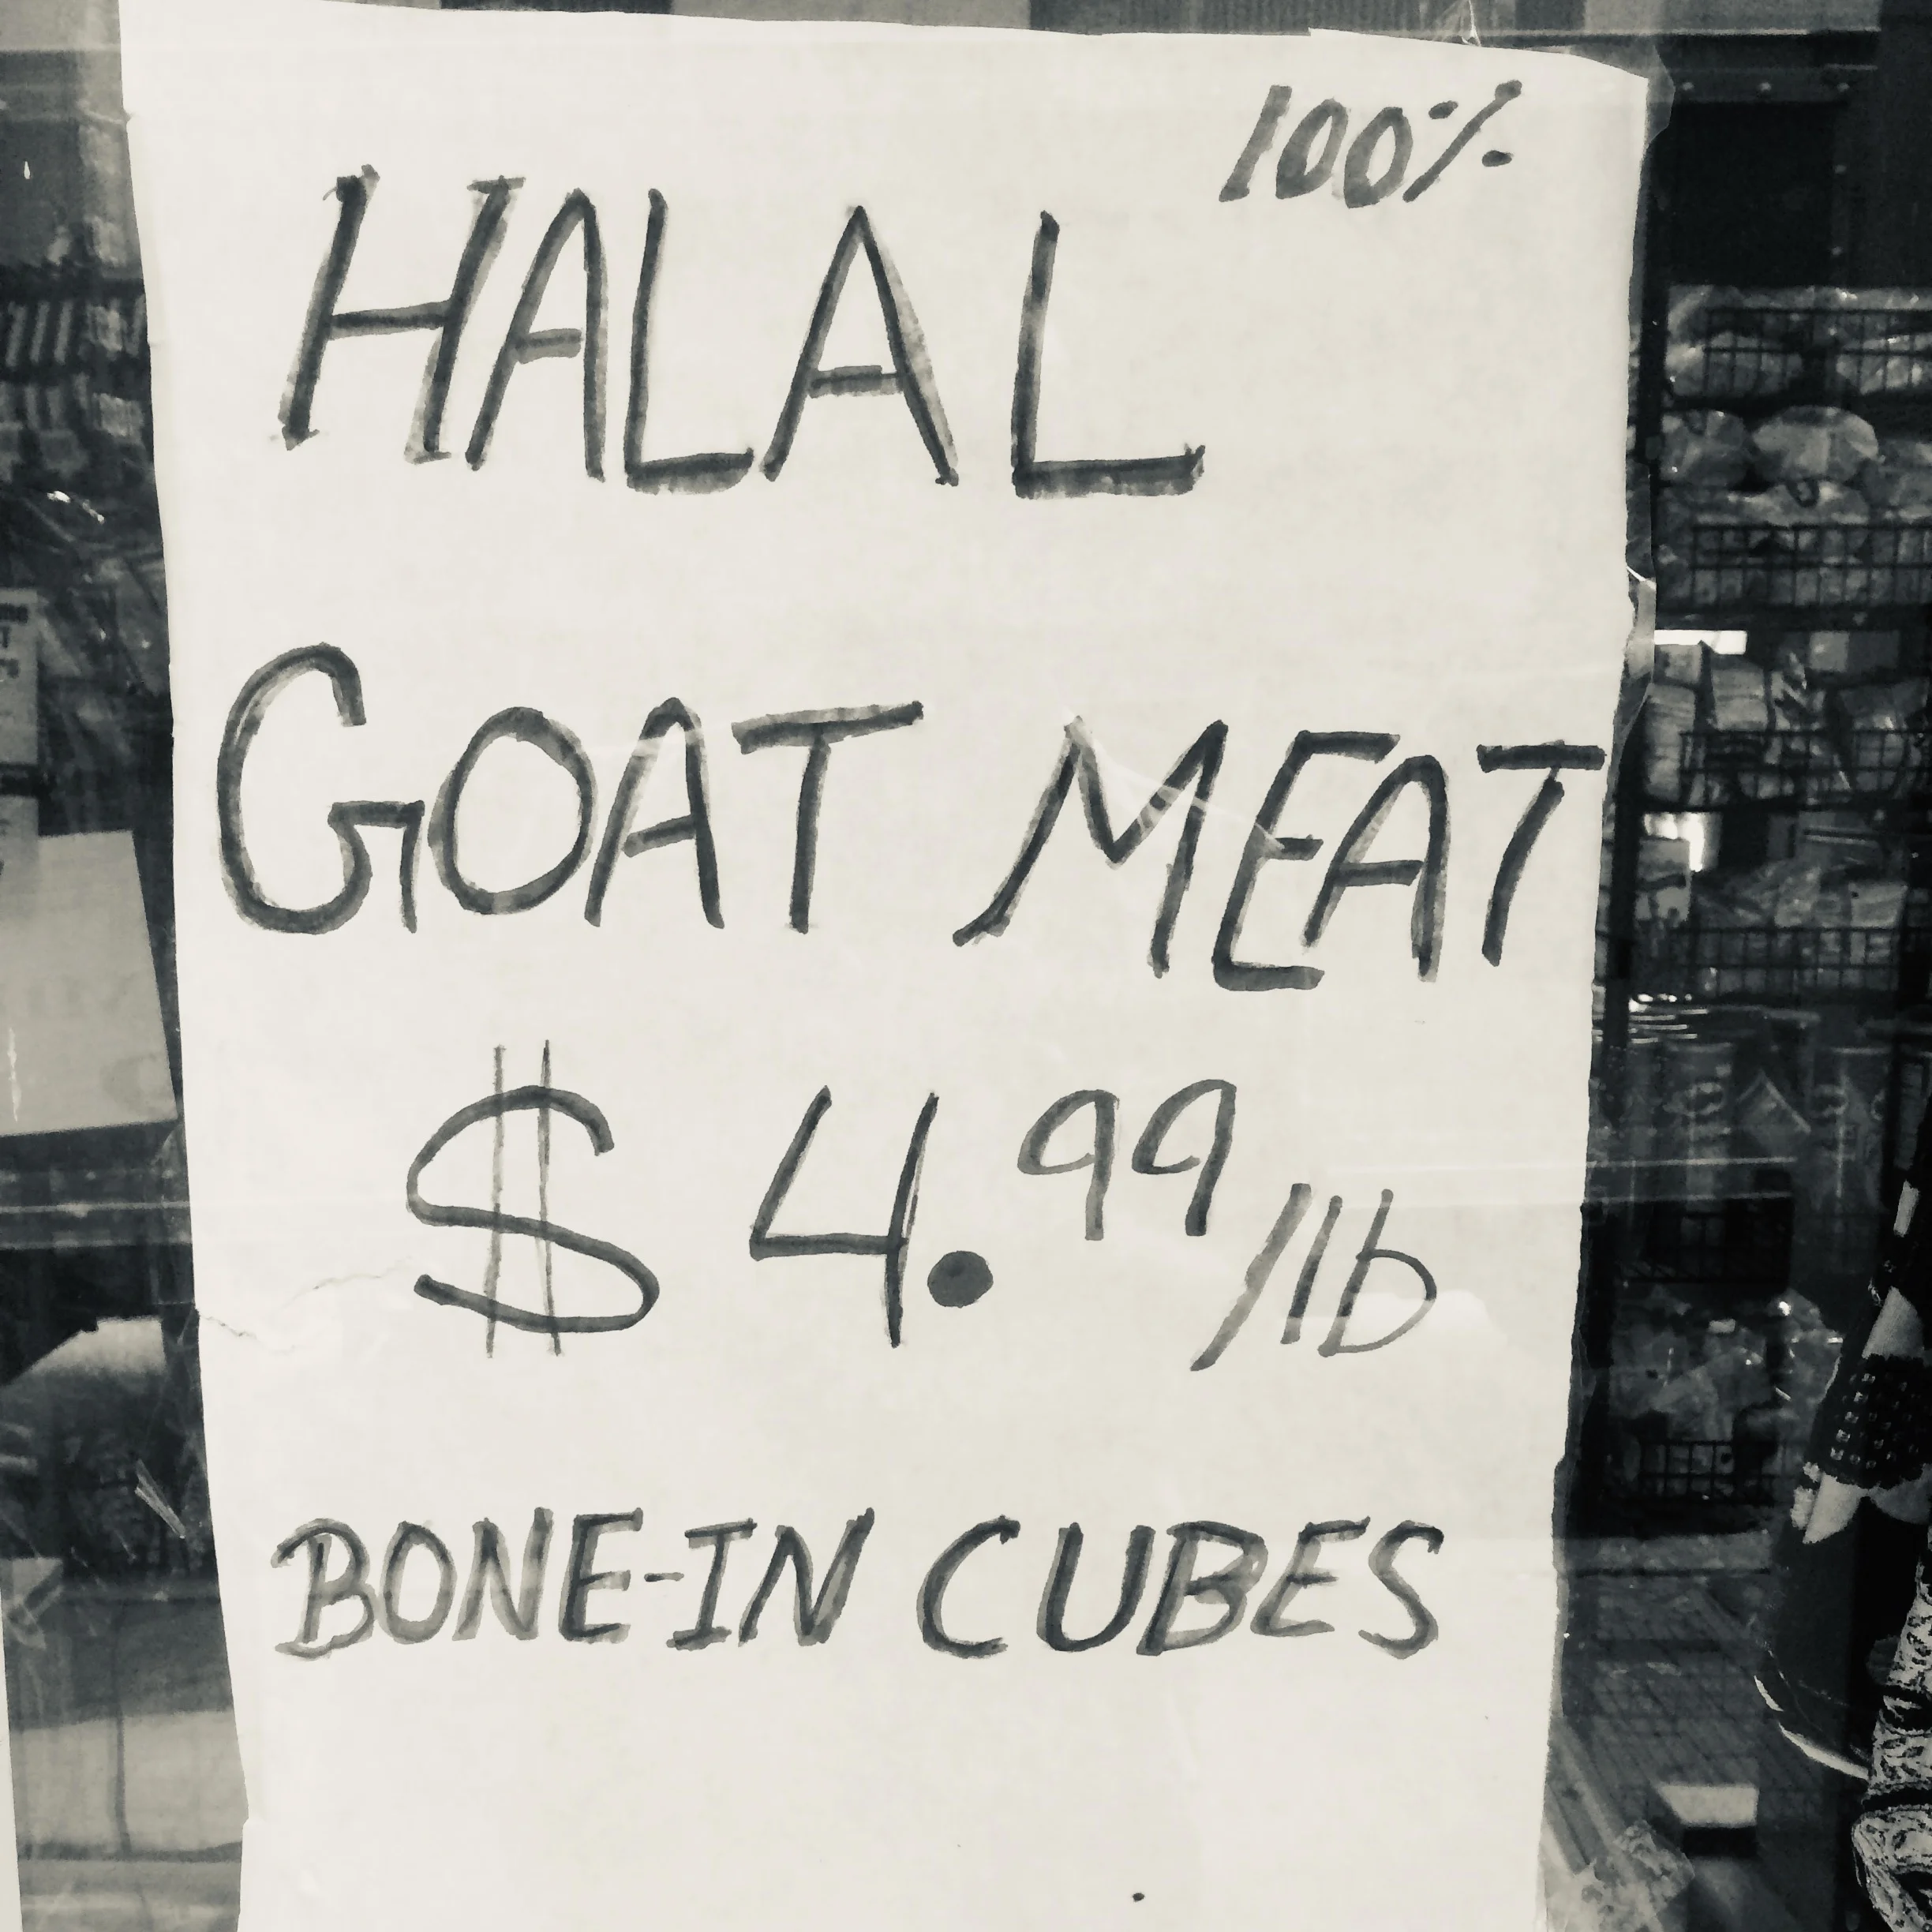 100%
HALAL
GOAT MEAT
$4.99/lb
BONE-IN CUBES